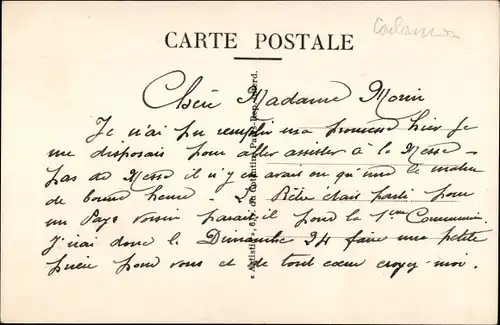 CARTE POSTALE
Chère Madame Morin
Je n'ai pu remplir ma promesse hier Je
me disposais pour aller assister à la Messe -
pas de Messe il n'y en avais eu qu'une le matin
de bonne heure - L' était parti pour
un Pays voisin parait il pour la 1ère Communion.
J'irai donc le Dimanche 24 faire une petite
prière pour vous et de tout cœur croyez-moi.
« Artistic », 67, du Cotentin, Paris-Rep. Interd.